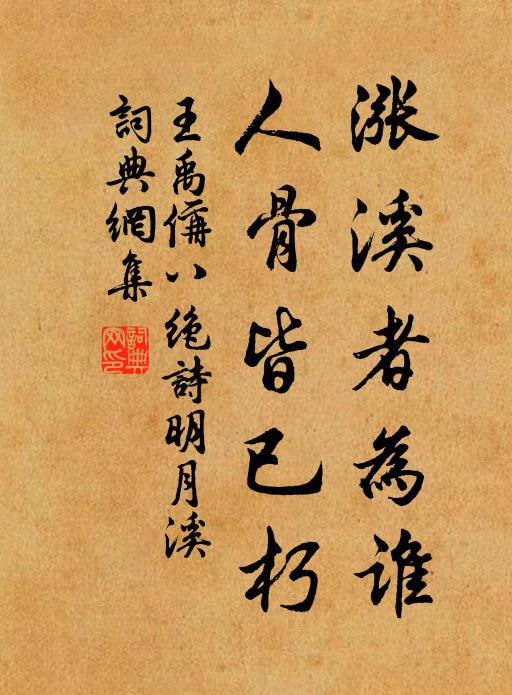 漲溪者為誰
人骨皆已朽
王禹偁八絶詩明月溪
詞典網集
詞典网印